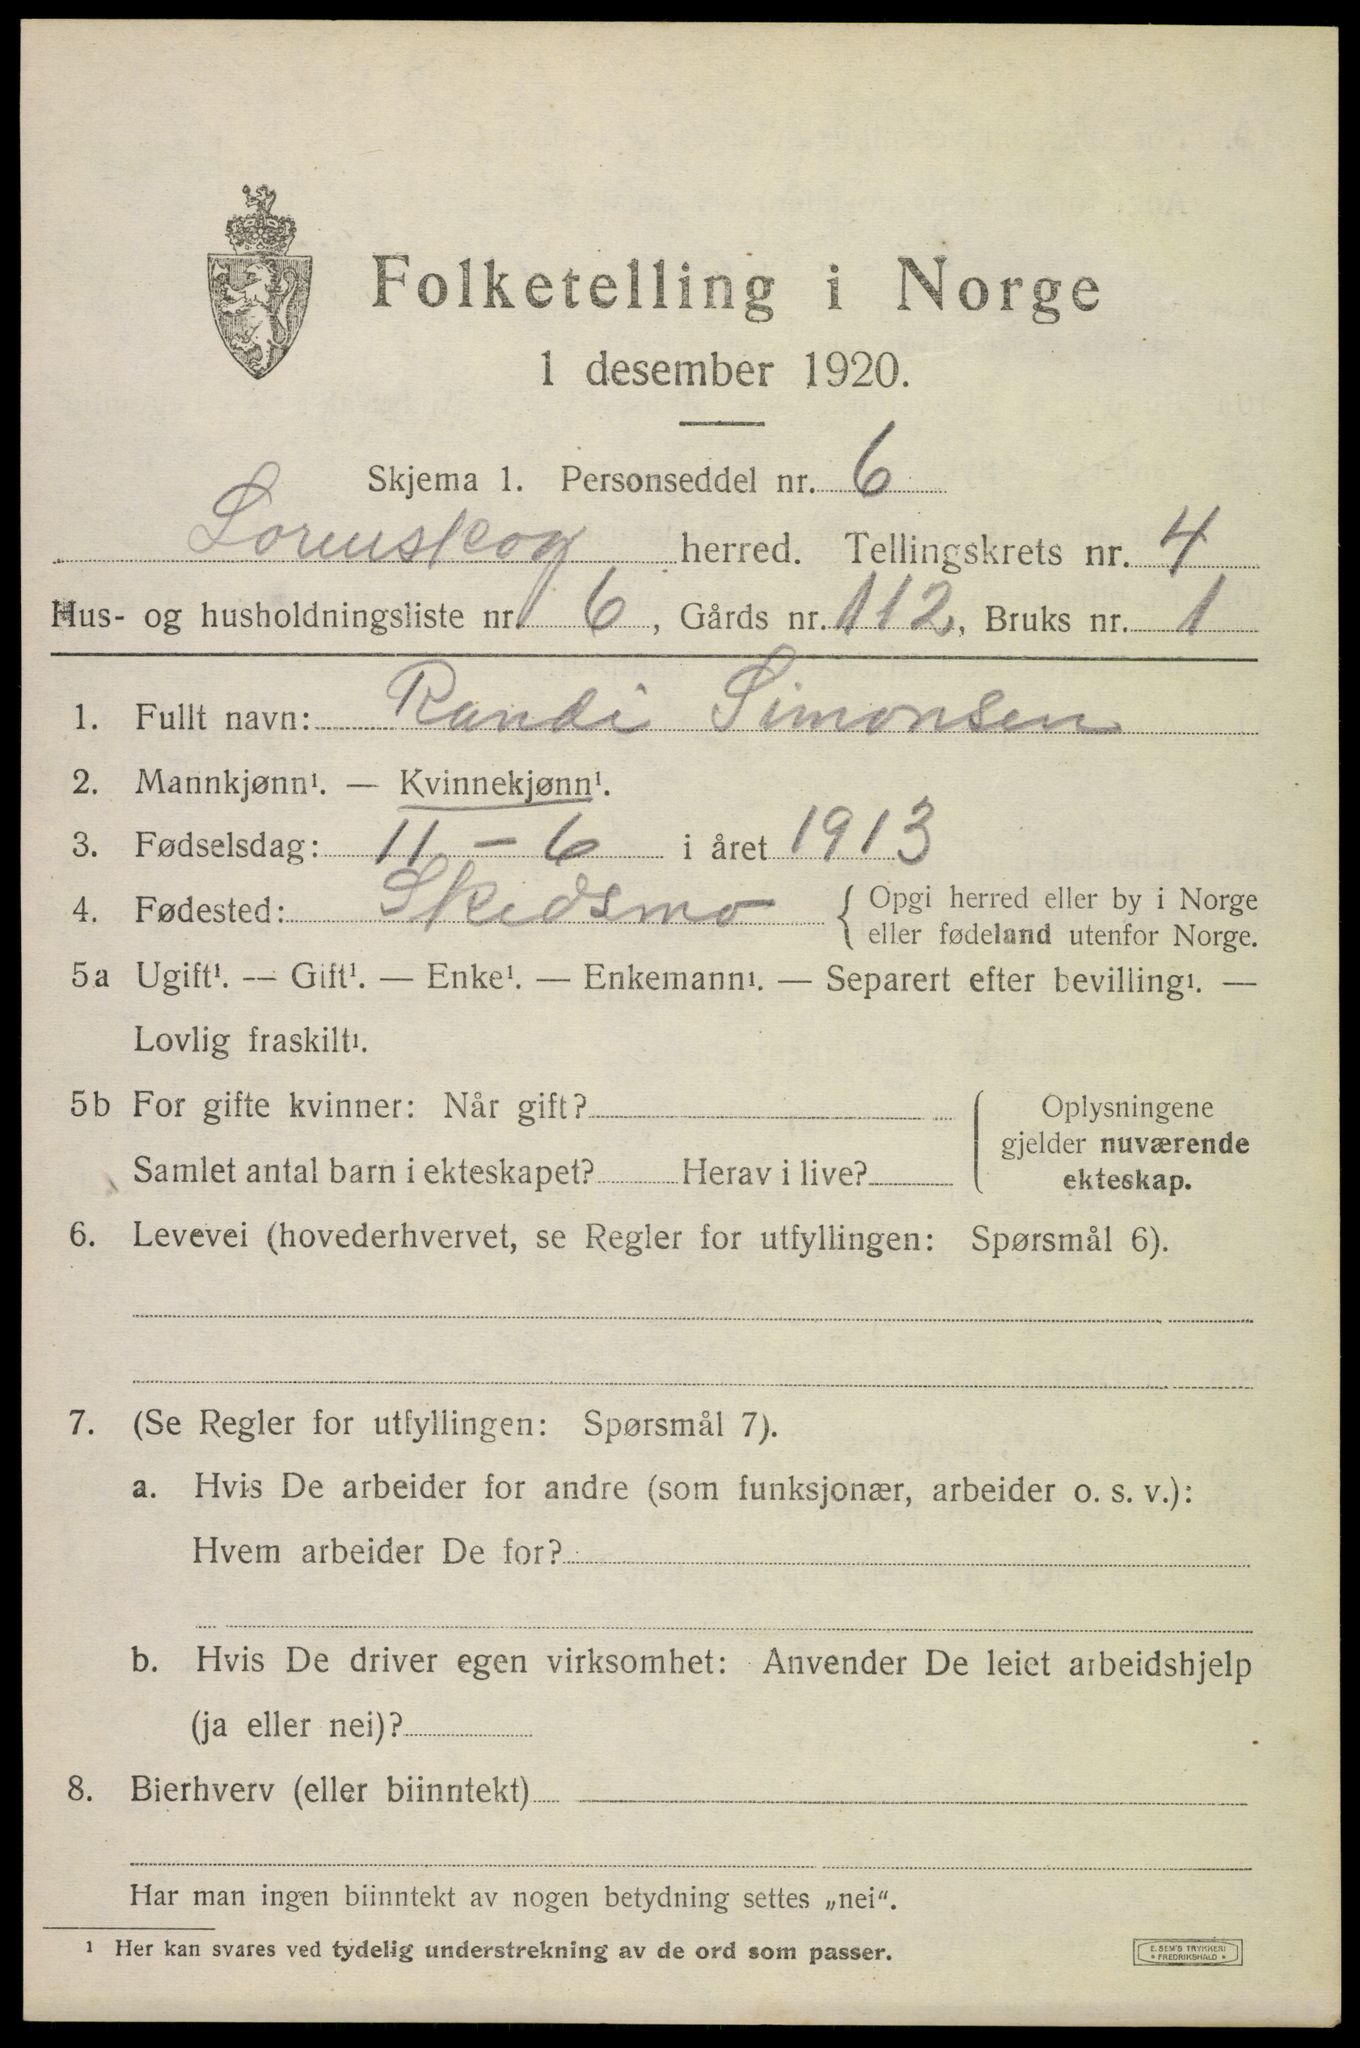 Folketelling i Norge
1 desember 1920.
Skjema 1. Personseddel nr. 6
Lorenskog herred. Tellingskrets nr. 4
Hus- og husholdningsliste nr. 6, Gårds nr. 112, Bruks nr. 1
1. Fullt navn: Randi Simonsen
2. Mannkjønn¹. — Kvinnekjønn¹.
3. Fødselsdag: 11 - 6 i året 1913
4. Fødested: Skedsmo { Opgi herred eller by i Norge
eller fødeland utenfor Norge.
5a Ugift¹. — Gift¹. — Enke¹. — Enkemann¹. — Separert efter bevilling¹. —
Lovlig fraskilt¹.
5b For gifte kvinner: Når gift?
Samlet antal barn i ekteskapet? Herav i live?
Oplysningene
gjelder nuværende
ekteskap.
6. Levevei (hovederhvervet, se Regler for utfyllingen: Spørsmål 6).
7. (Se Regler for utfyllingen: Spørsmål 7).
a. Hvis De arbeider for andre (som funksjonær, arbeider o. s. v.):
Hvem arbeider De for?
b. Hvis De driver egen virksomhet: Anvender De leiet arbeidshjelp
(ja eller nei)?
8. Bierhverv (eller biinntekt)
Har man ingen biinntekt av nogen betydning settes „nei“.
¹ Her kan svares ved tydelig understrekning av de ord som passer.
E. SEM'S TRYKKERI
• FREDRIKSHALD •